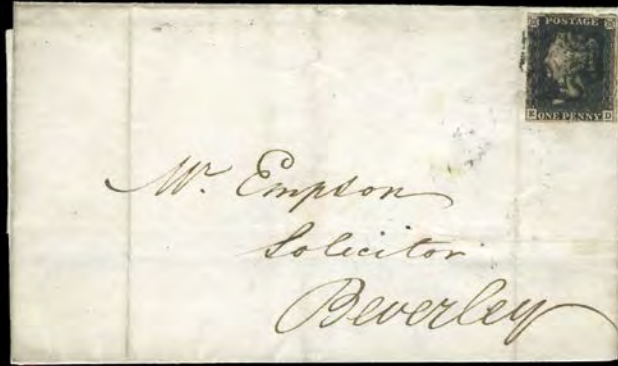 POSTAGE
E D
ONE PENNY
Mr. Empson
Solicitor
Beverley